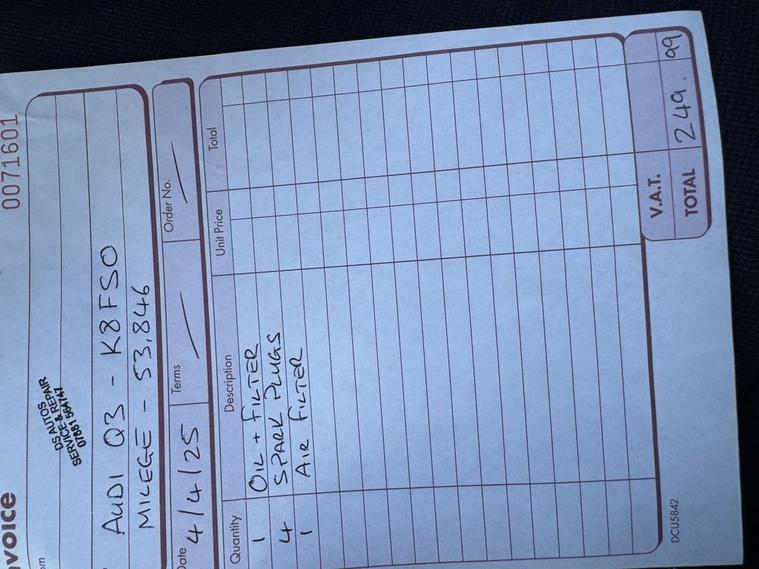 voice
0071601
om
DS AUTOS
SERVICE & REPAIR
AUDI Q3 - K8FSO
MILEGE - 53,846
Date 4/4/25 Terms Order No.
Quantity Description Unit Price Total
1 OIL + FILTER
4 SPARK PLUGS
1 AIR FILTER
V.A.T.
TOTAL 249.99
DCU5842